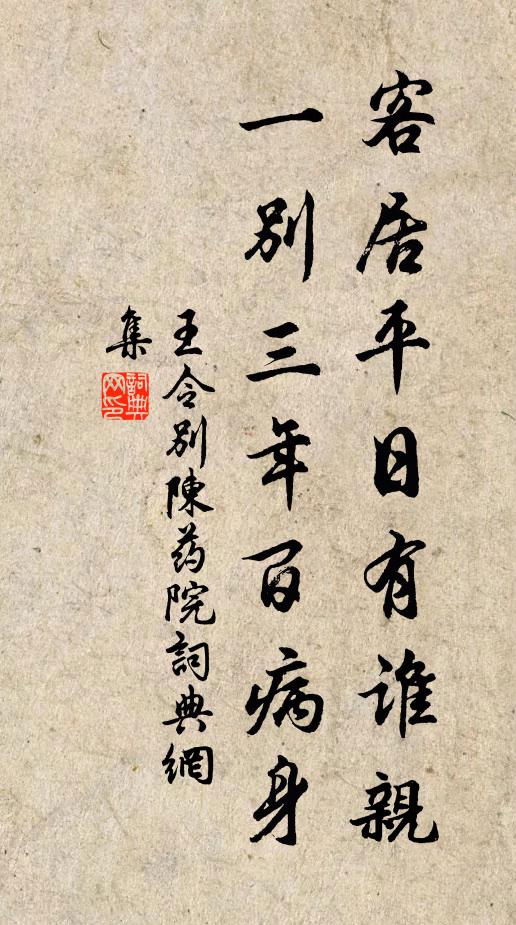 客居平日有誰親
一別三年百病身
王令別陳药院詞典網
集
詞典网印